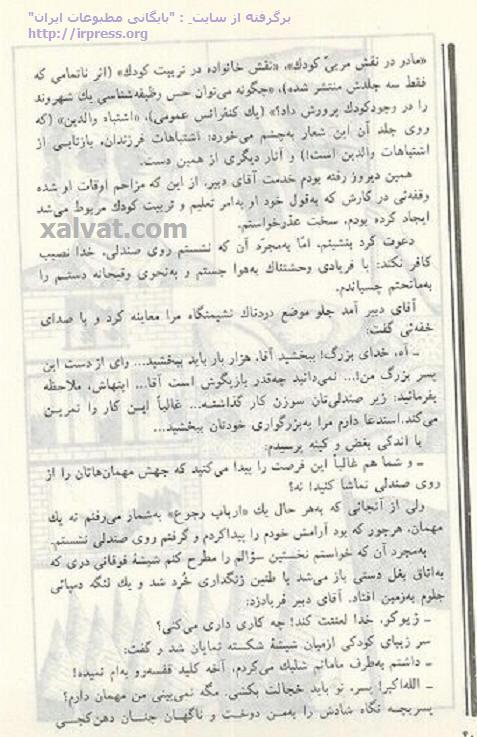 برگرفته از سایت : "بایگانی مطبوعات ایران"
http://irpress.org
«مادر در نقش مربیّ کودك»، «نقش خانواده در تربیت کودك» (اثر ناتمامی که
فقط سه جلدش منتشر شده)، «چگونه می‌توان حس وظیفه‌شناسی یك شهروند
را در وجود کودك پرورش داد؟» (یك کنفرانس عمومی)، «اشتباه والدین» (که
روی جلد آن این شعار به‌چشم می‌خورد: اشتباهات فرزندان، بازتابی از
اشتباهات والدین است!) و آثار دیگری از همین دست.
همین دیروز رفته بودم خدمت آقای دبیر. از این که مزاحم اوقات او شده
وقفه‌ئی در کارش که به‌قول خود او به‌امر تعلیم و تربیت کودك مربوط می‌شد
ایجاد کرده بودم، سخت عذرخواستم.
xalvat.com
دعوت کرد بنشینم. امّا به‌مجرّد آن که نشستم روی صندلی، خدا نصیب
کافر نکند: با فریادی وحشتناك به‌هوا جستم و به‌نحوی وقیحانه دستم را
به‌ماتحتم چسباندم.
آقای دبیر آمد جلو موضع دردناك نشیمنگاه مرا معاینه کرد و با صدای
خفه‌ئی گفت:
ـ آه، خدای بزرگ! ببخشید آقا، هزار بار باید ببخشید... وای از دست این
پسر بزرگ من!... نمی‌دانید چه‌قدر بازیگوش است آقا... اینهاش، ملاحظه
بفرمائید: زیر صندلی‌تان سوزن کار گذاشته... غالباً این کار را تمرین
می‌کند. استدعا دارم مرا به‌بزرگواری خودتان ببخشید...
با اندکی بغض و کینه پرسیدم:
ـ و شما هم غالباً این فرصت را پیدا می‌کنید که جهش مهمان‌هاتان را از
روی صندلی تماشا کنید! نه؟
ولی از آنجائی که به‌هر حال یك «ارباب رجوع» به‌شمار می‌رفتم نه یك
مهمان، هرجور که بود آرامش خودم را پیدا کردم و گرفتم روی صندلی نشستم.
به‌مجرد آن که خواستم نخستین سؤالم را مطرح کنم شیشهٔ فوقانی دری که
به‌اتاق بغل دستی باز می‌شد با طنین زنگداری خُرد شد و یك لنگه دمپائی
جلوم به‌زمین افتاد. آقای دبیر فریاد زد:
ـ ژیوکو، خدا لعنتت کند! چه کاری داری می‌کنی؟
سر زیبای کودکی از میان شیشهٔ شکسته نمایان شد و گفت:
ـ داشتم به‌طرف مامانم شلیك می‌کردم، آخه کلید قفسه‌رو به‌ام نمیده!
ـ الله‌اکبر! پسر، تو باید خجالت بکشی. مگه نمی‌بینی من مهمان دارم؟
پسربچه نگاه شادش را به‌من دوخت و ناگهان چنان دهن‌کجی